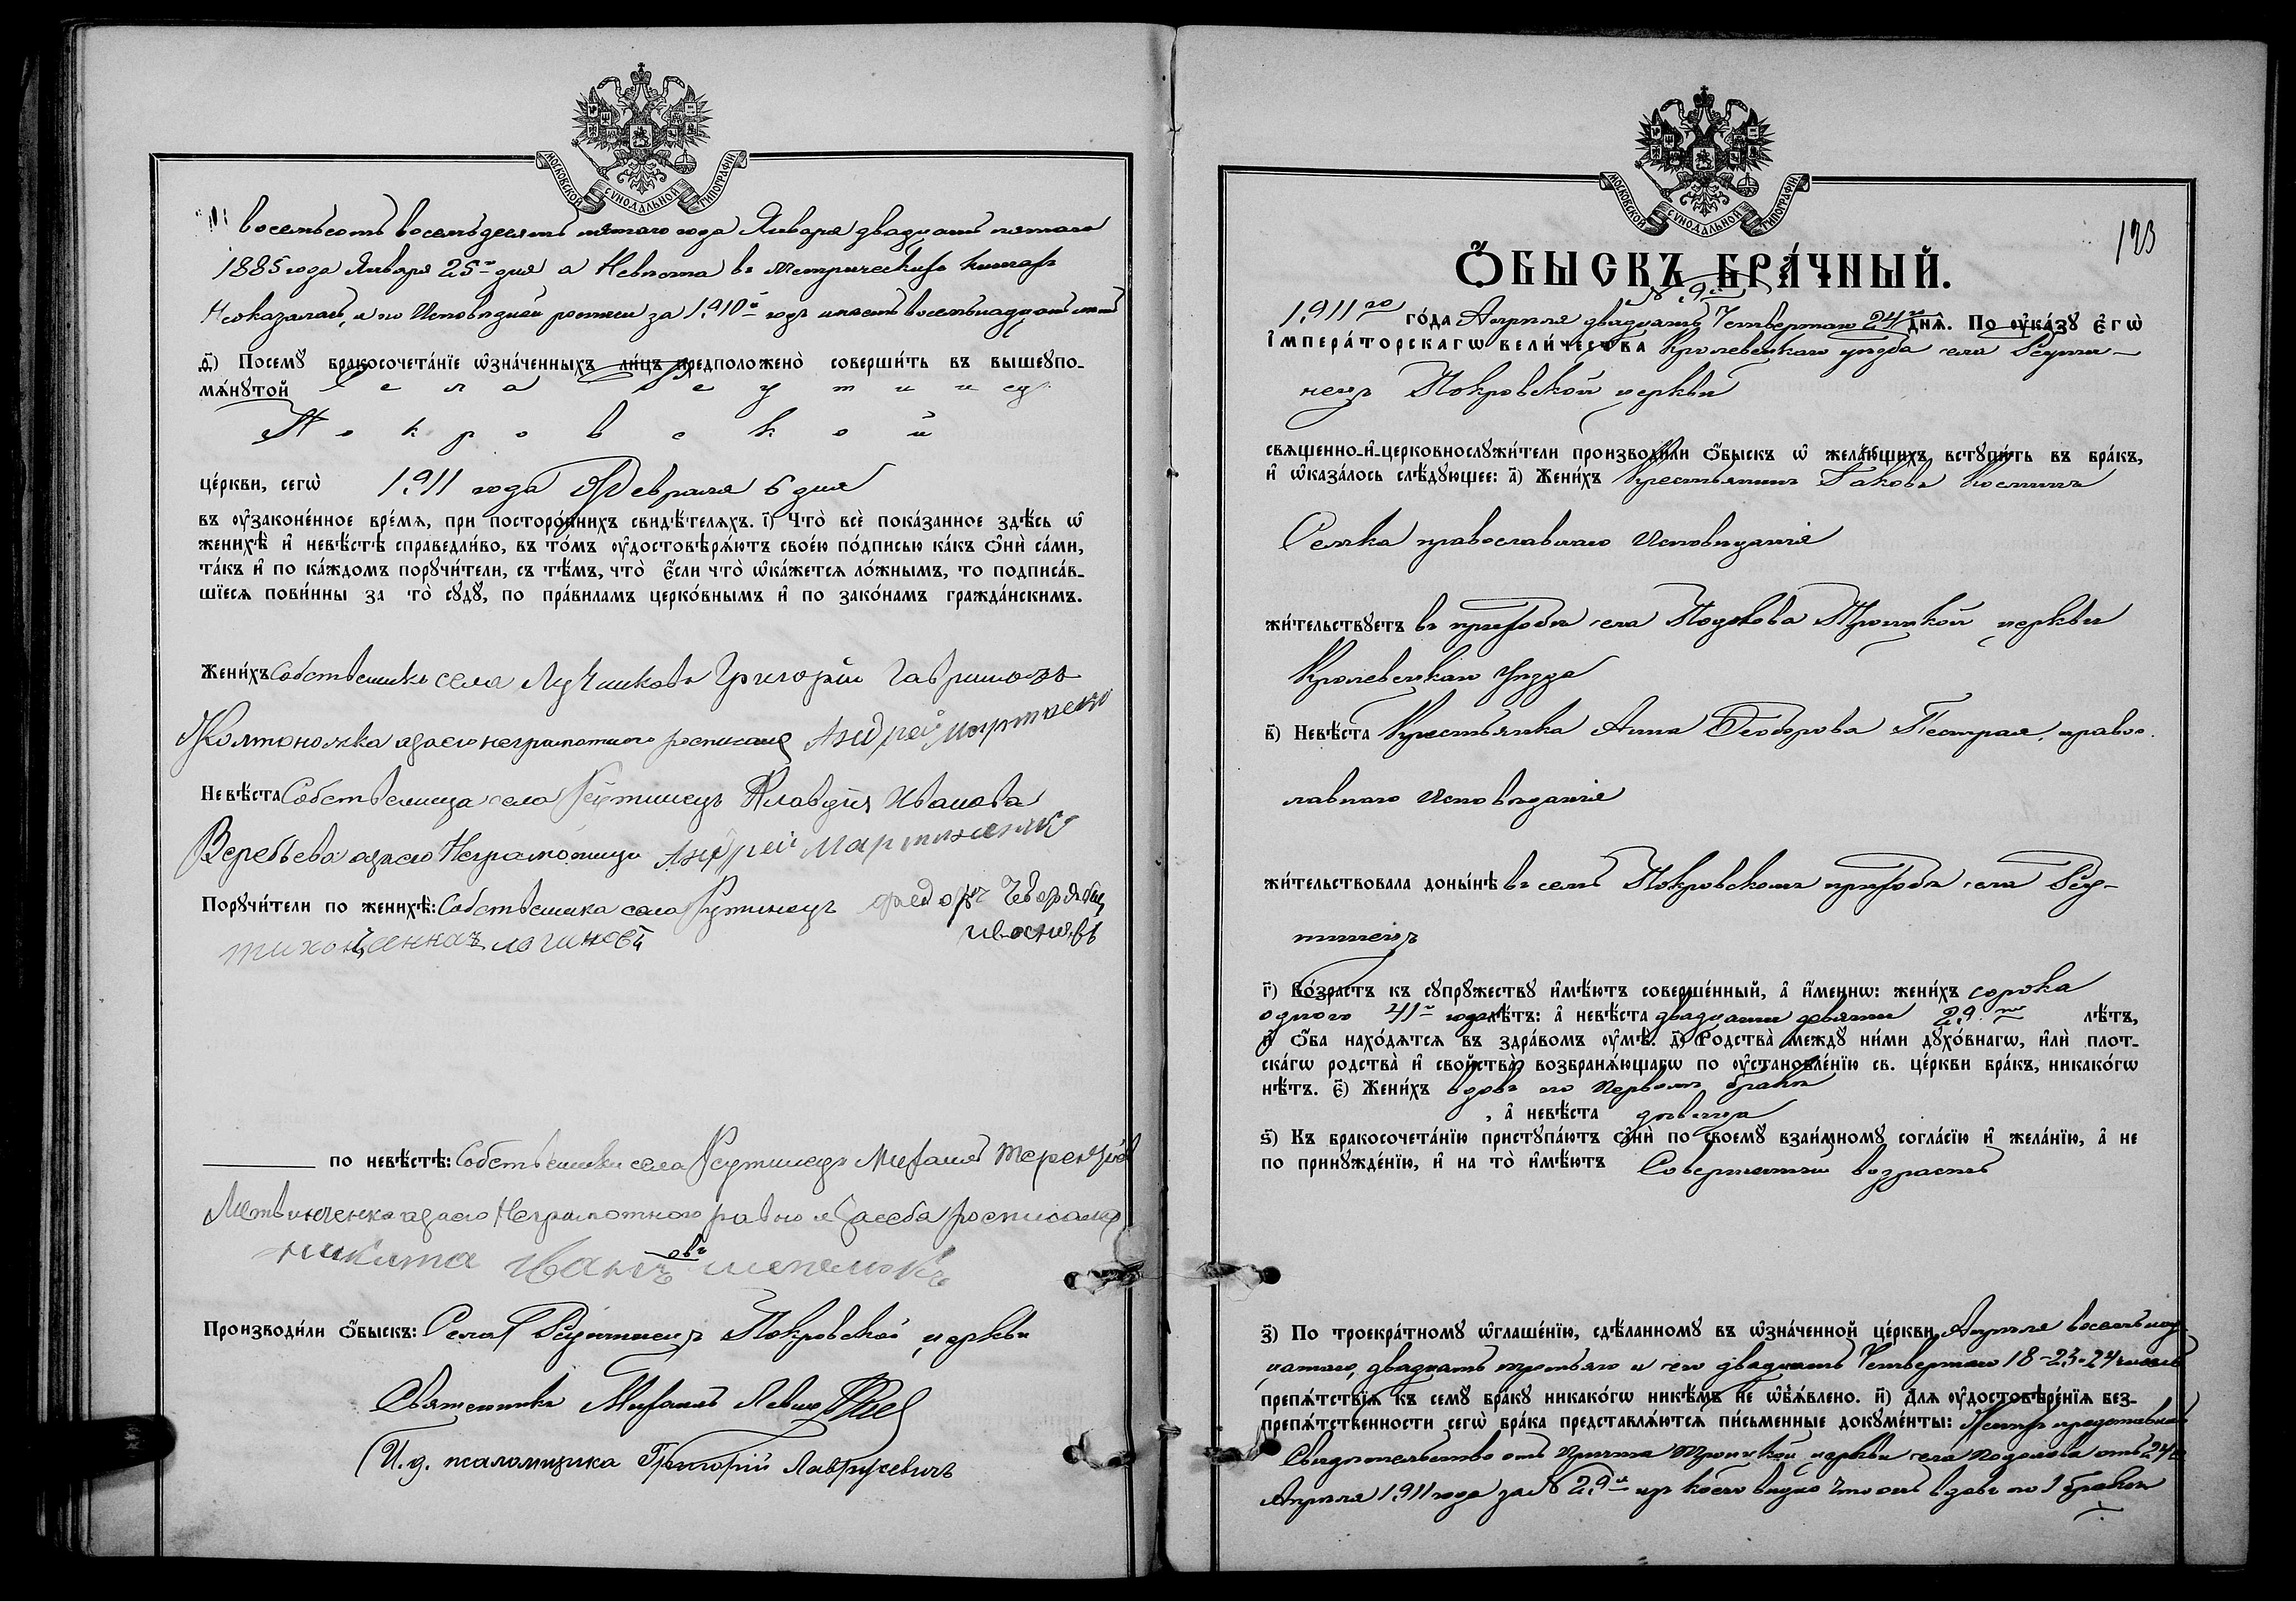 МОСКОВСКОЙ СѴНОДАЛЬНОЙ ТИПОГРАФІИ.
восемьсотъ восемьдесятъ пятаго года Января двадцать пятаго
1885 года Января 25го дня а Невѣста въ метрическихъ книгахъ
Неоказалась, а по Исповѣдной росписи за 1910й годъ
д҃) Посемꙋ̀ бракосочета́нїе ѡ҆зна́ченныхъ ли́цъ предположено̀ соверши́ть въ вышеꙋпо-
мѧ́нꙋтой Села Реутинец
Покровской
це́ркви, сегѡ̀ 1911 года Февраля 6 дня
въ ᲂу҆законе́нное вре́мѧ, при посторо́ннихъ свидѣ́телѧхъ. і҃) Что̀ всѐ пока́занное здѣ́сь ѡ҆
женихѣ̀ и҆ невѣ́стѣ справедли́во, въ то́мъ ᲂу҆достовѣрѧ́ютъ свое́ю по́дписью ка́къ ѻ҆нѝ са́ми,
та́къ и҆ по ка́ждомъ порꙋчи́тели, съ тѣ́мъ, что̀ є҆́сли что̀ ѡ҆ка́жетсѧ ло́жнымъ, то подписа́в-
шїесѧ пови́нны за то̀ сꙋдꙋ̀, по пра́виламъ церко́внымъ и҆ по зако́намъ гражда́нскимъ.
Жени́хъ Собственникъ села Лучниковъ Григорій Гавриловъ
Жолтоножка а за его неграмотного росписался Андрей Мартиненко
Невѣ́ста Собственница села Реутинецъ Клавдія Иванова
Веребьева а за нею Неграмотную Андрей Мартиненко
Порꙋчи́тели по женихѣ̀: Собственника села Реутинецъ Федоръ
Тихон Логинов
по невѣ́стѣ: Собственники села Реутинецъ Михаилъ Терентіев
Литвинченко а за его Неграмотного равно и за себа росписался
Никита Ивановъ Шепелюкъ
Производи́ли ѻ҆́быскъ: Села Реутинецъ Покровской церкви
Священникъ Михаилъ
И. д. псаломщика Григорій Лаврусевичъ
МОСКОВСКОЙ СѴНОДАЛЬНОЙ ТИПОГРАФІИ.
123
Ѻ҆́БЫСКЪ БРА́ЧНЫЙ.
№ 9й
1911го го́да Апрѣля двадцать Четвертаго 24го днѧ̀. По ᲂу҆ка́зꙋ Є҆гѡ̀
І҆мпера́торскагѡ вели́чества Кролевецкаго уѣзда села Реути-
нецъ Покровской церкви
свѧщенно-и҆-церковнослꙋжи́тели производи́ли ѻ҆́быскъ ѡ҆ жела́ющихъ встꙋпи́ть въ бра́къ,
и҆ ѡ҆каза́лось слѣ́дꙋющее: а҃) Жени́хъ Крестьянинъ Іаковъ Косминъ
Семка православнаго Исповѣданія
жи́тельствꙋетъ въ приходѣ села Подолова Троицкой церкви
Кролевецкаго Уѣзда
в҃) Невѣ́ста Крестьянка Анна Ѳеодорова Пестрая, правос-
лавнаго Исповѣданія
жи́тельствовала доны́нѣ въ семъ Покровскомъ приходѣ села Реу-
тинецъ
г҃) Во́зрастъ къ сꙋпрꙋ́жествꙋ и҆мѣ́ютъ соверше́нный, а҆ и҆́меннѡ: жени́хъ сорока
одного 41го года лѣ́тъ: а҆ невѣ́ста двадцати девяти 29ти лѣ́тъ,
и҆ ѻ҆́ба нахо́дѧтсѧ въ здра́вомъ ᲂу҆мѣ̀. д҃) Родства̀ междꙋ̀ ни́ми дꙋхо́внагѡ, и҆лѝ плот-
ска́гѡ родства̀ и҆ свойства̀, возбранѧ́ющагѡ по ᲂу҆становле́нїю св. це́ркви бра́къ, никако́гѡ
нѣ́тъ. є҃) Жени́хъ вдовъ по первомъ бракѣ
, а҆ невѣ́ста дѣвица
ѕ҃) Къ бракосочета́нїю пристꙋпа́ютъ ѻ҆нѝ по своемꙋ̀ взаи́мномꙋ согла́сїю и҆ жела́нїю, а҆ не
по принꙋжде́нїю, и҆ на то̀ и҆мѣ́ютъ Совершенный возрастъ
з҃) По троекра́тномꙋ ѡ҆глаше́нїю, сдѣ́ланномꙋ въ ѡ҆зна́ченной це́ркви Апрѣля восемьнад-
цатаго, двадцать третьяго и сего двадцать Четвертаго 18-23-24 чиселъ
препѧ́тствїѧ къ семꙋ̀ бра́кꙋ никако́гѡ никѣ́мъ не ѡ҆б̾ѧ́влено. и҃) Длѧ̀ ᲂу҆достовѣре́нїѧ без-
препѧ́тственности сегѡ̀ бра́ка представлѧ́ютсѧ пи́сьменные докꙋме́нты: Женихъ представилъ
Свидѣтельство отъ Причта Троицкой церкви села Подолова отъ 24го
Апрѣля 1911 года за № 29й изъ коего видно что онъ вдовъ по I бракѣ